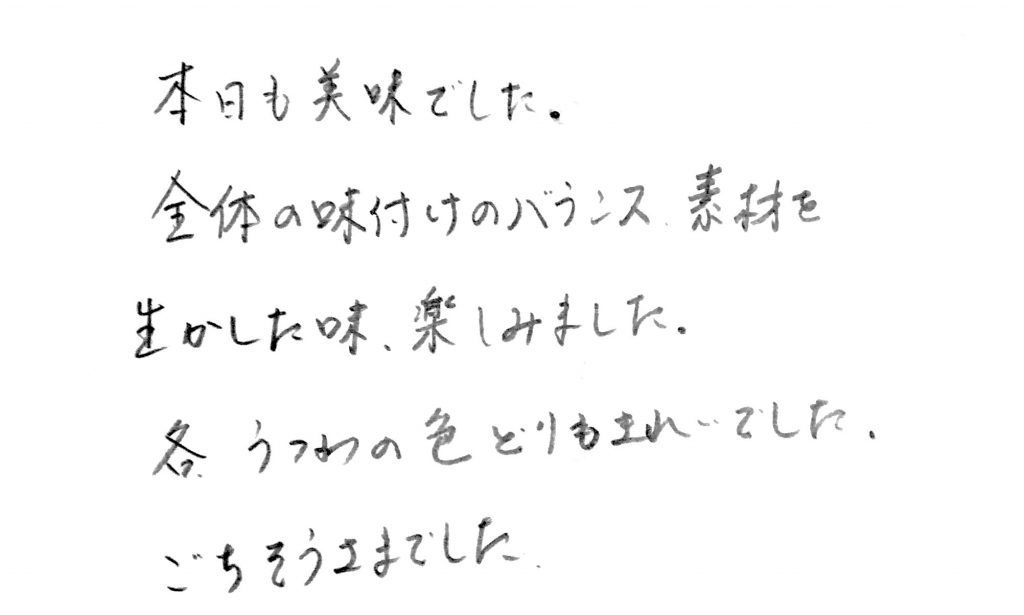 本日も美味でした。
全体の味付けのバランス、素材を
生かした味、楽しみました。
各、うつわの色どりもきれいでした。
ごちそうさまでした。